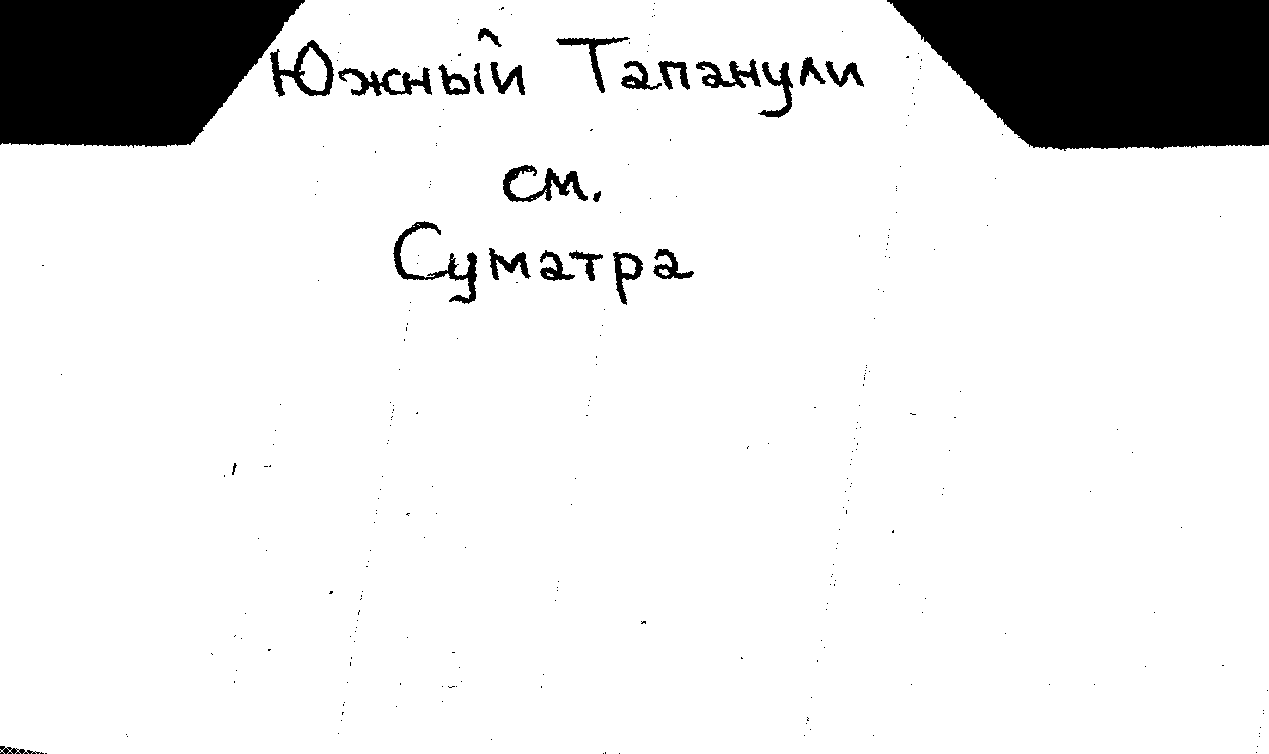 Южный Тапанули
см.
Суматра